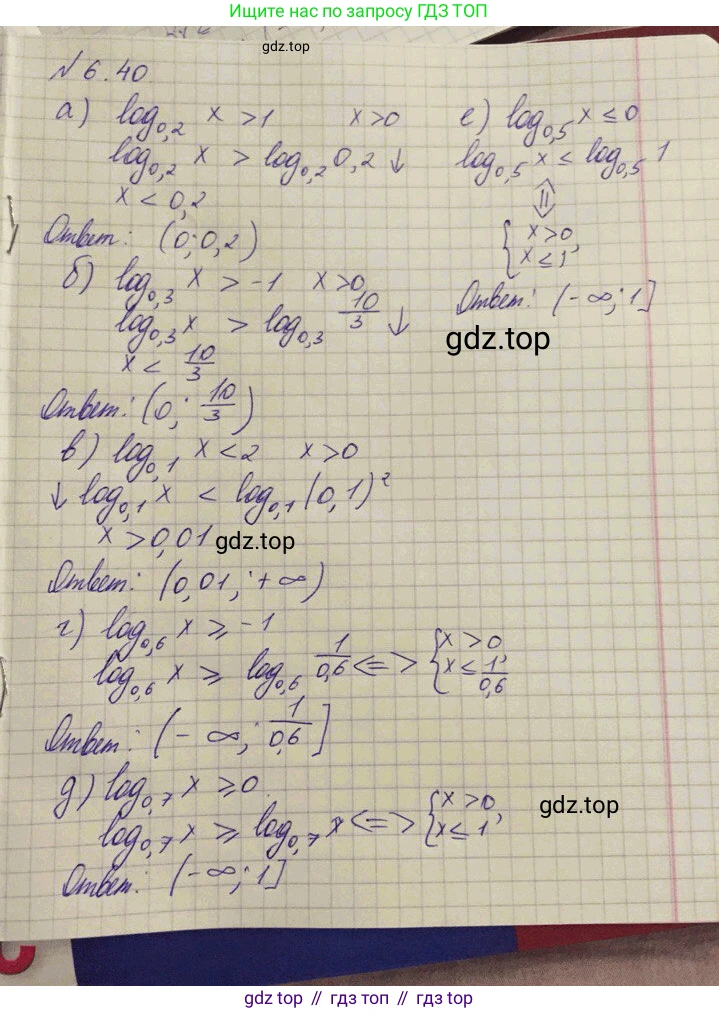 Ищите ответы по запросу ГДЗ ТОП
gdz.top
№ 6.40
а) log₀,₂ x > 1 x > 0
log₀,₂ x > log₀,₂ 0,2 ↓
x < 0,2
Ответ: (0; 0,2)
б) log₀,₃ x > -1 x > 0
log₀,₃ x > log₀,₃ 10/3 ↓
x < 10/3
Ответ: (0; 10/3)
в) log₀,₁ x < 2 x > 0
↓ log₀,₁ x < log₀,₁ (0,1)²
x > 0,01
Ответ: (0,01; +∞)
г) log₀,₆ x ≥ -1
log₀,₆ x ≥ log₀,₆ 1/0,6 <=> { x > 0, x ≤ 1/0,6
Ответ: (-∞; 1/0,6]
д) log₀,₇ x ≥ 0.
log₀,₇ x ≥ log₀,₇ <=> { x > 0, x ≤ 1
Ответ: (-∞; 1]
е) log₀,₅ x ≤ 0
log₀,₅ x ≤ log₀,₅ 1
⇕
{ x > 0, x ≤ 1
Ответ: (-∞; 1]
gdz.top
gdz.top
gdz.top
gdz.top // гдз топ // гдз.top